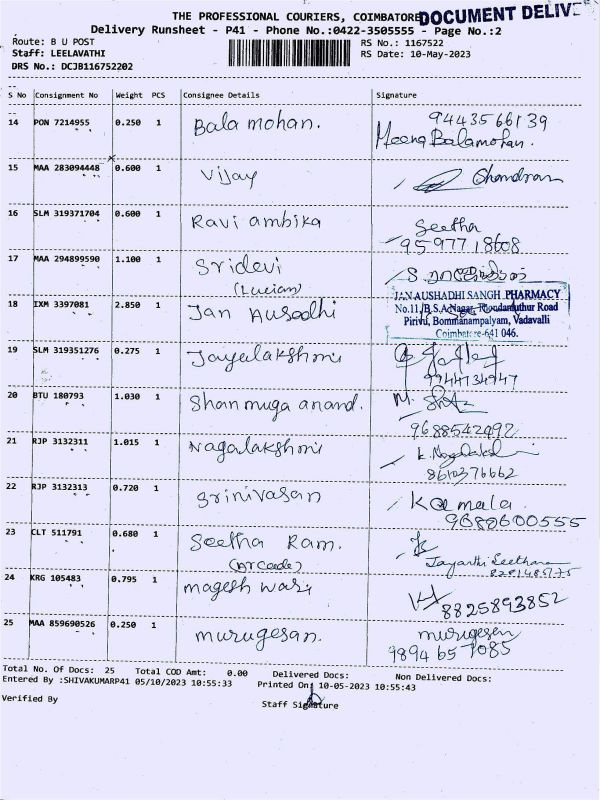 THE PROFESSIONAL COURIERS, COIMBATORE DOCUMENT DELIV
Delivery Runsheet - P41 - Phone No.:0422-3505555 - Page No.:2
Route: B U POST RS No.: 1167522
Staff: LEELAVATHI RS Date: 10-May-2023
DRS No.: DCJB116752202
S No Consignment No Weight PCS Consignee Details Signature
9443566139
14 PON 7214955 0.250 1 Bala mohan. Meena Balamohan.
15 MAA 283094448 0.600 1 Vijay Chandran
16 SLM 319371704 0.600 1 Ravi ambika Seetha
9597718608
17 MAA 294899590 1.100 1 Sridevi S
(Lucian)
JAN AUSHADHI SANGH PHARMACY
18 IXM 3397081 2.850 1 Jan Ausodhi No.11, B.S.A.Nagar, Mondamduthur Road
Pirivu, Bommanampalyam, Vadavalli
Coimbatore-641 046.
19 SLM 319351276 0.275 1 Jayalakshmi
9944734947
20 BTU 180793 1.030 1 Shanmuga anand. M.
9688542492
21 RJP 3132311 1.015 1 Nagalakshmi K. Nagalakshmi
8610376662
22 RJP 3132313 0.720 1 Srinivasan Kamala
9688600555
23 CLT 511791 0.680 1 Seetha Ram.
(Arcade) Jayanthi Seetharam
24 KRG 105483 0.795 1 magesh wari
8825893852
25 MAA 859690526 0.250 1 murugesan. murugesen
9894657085
Total No. Of Docs: 25 Total COD Amt: 0.00 Delivered Docs: Non Delivered Docs:
Entered By :SHIVAKUMARP41 05/10/2023 10:55:33 Printed On: 10-05-2023 10:55:43
Verified By Staff Signature